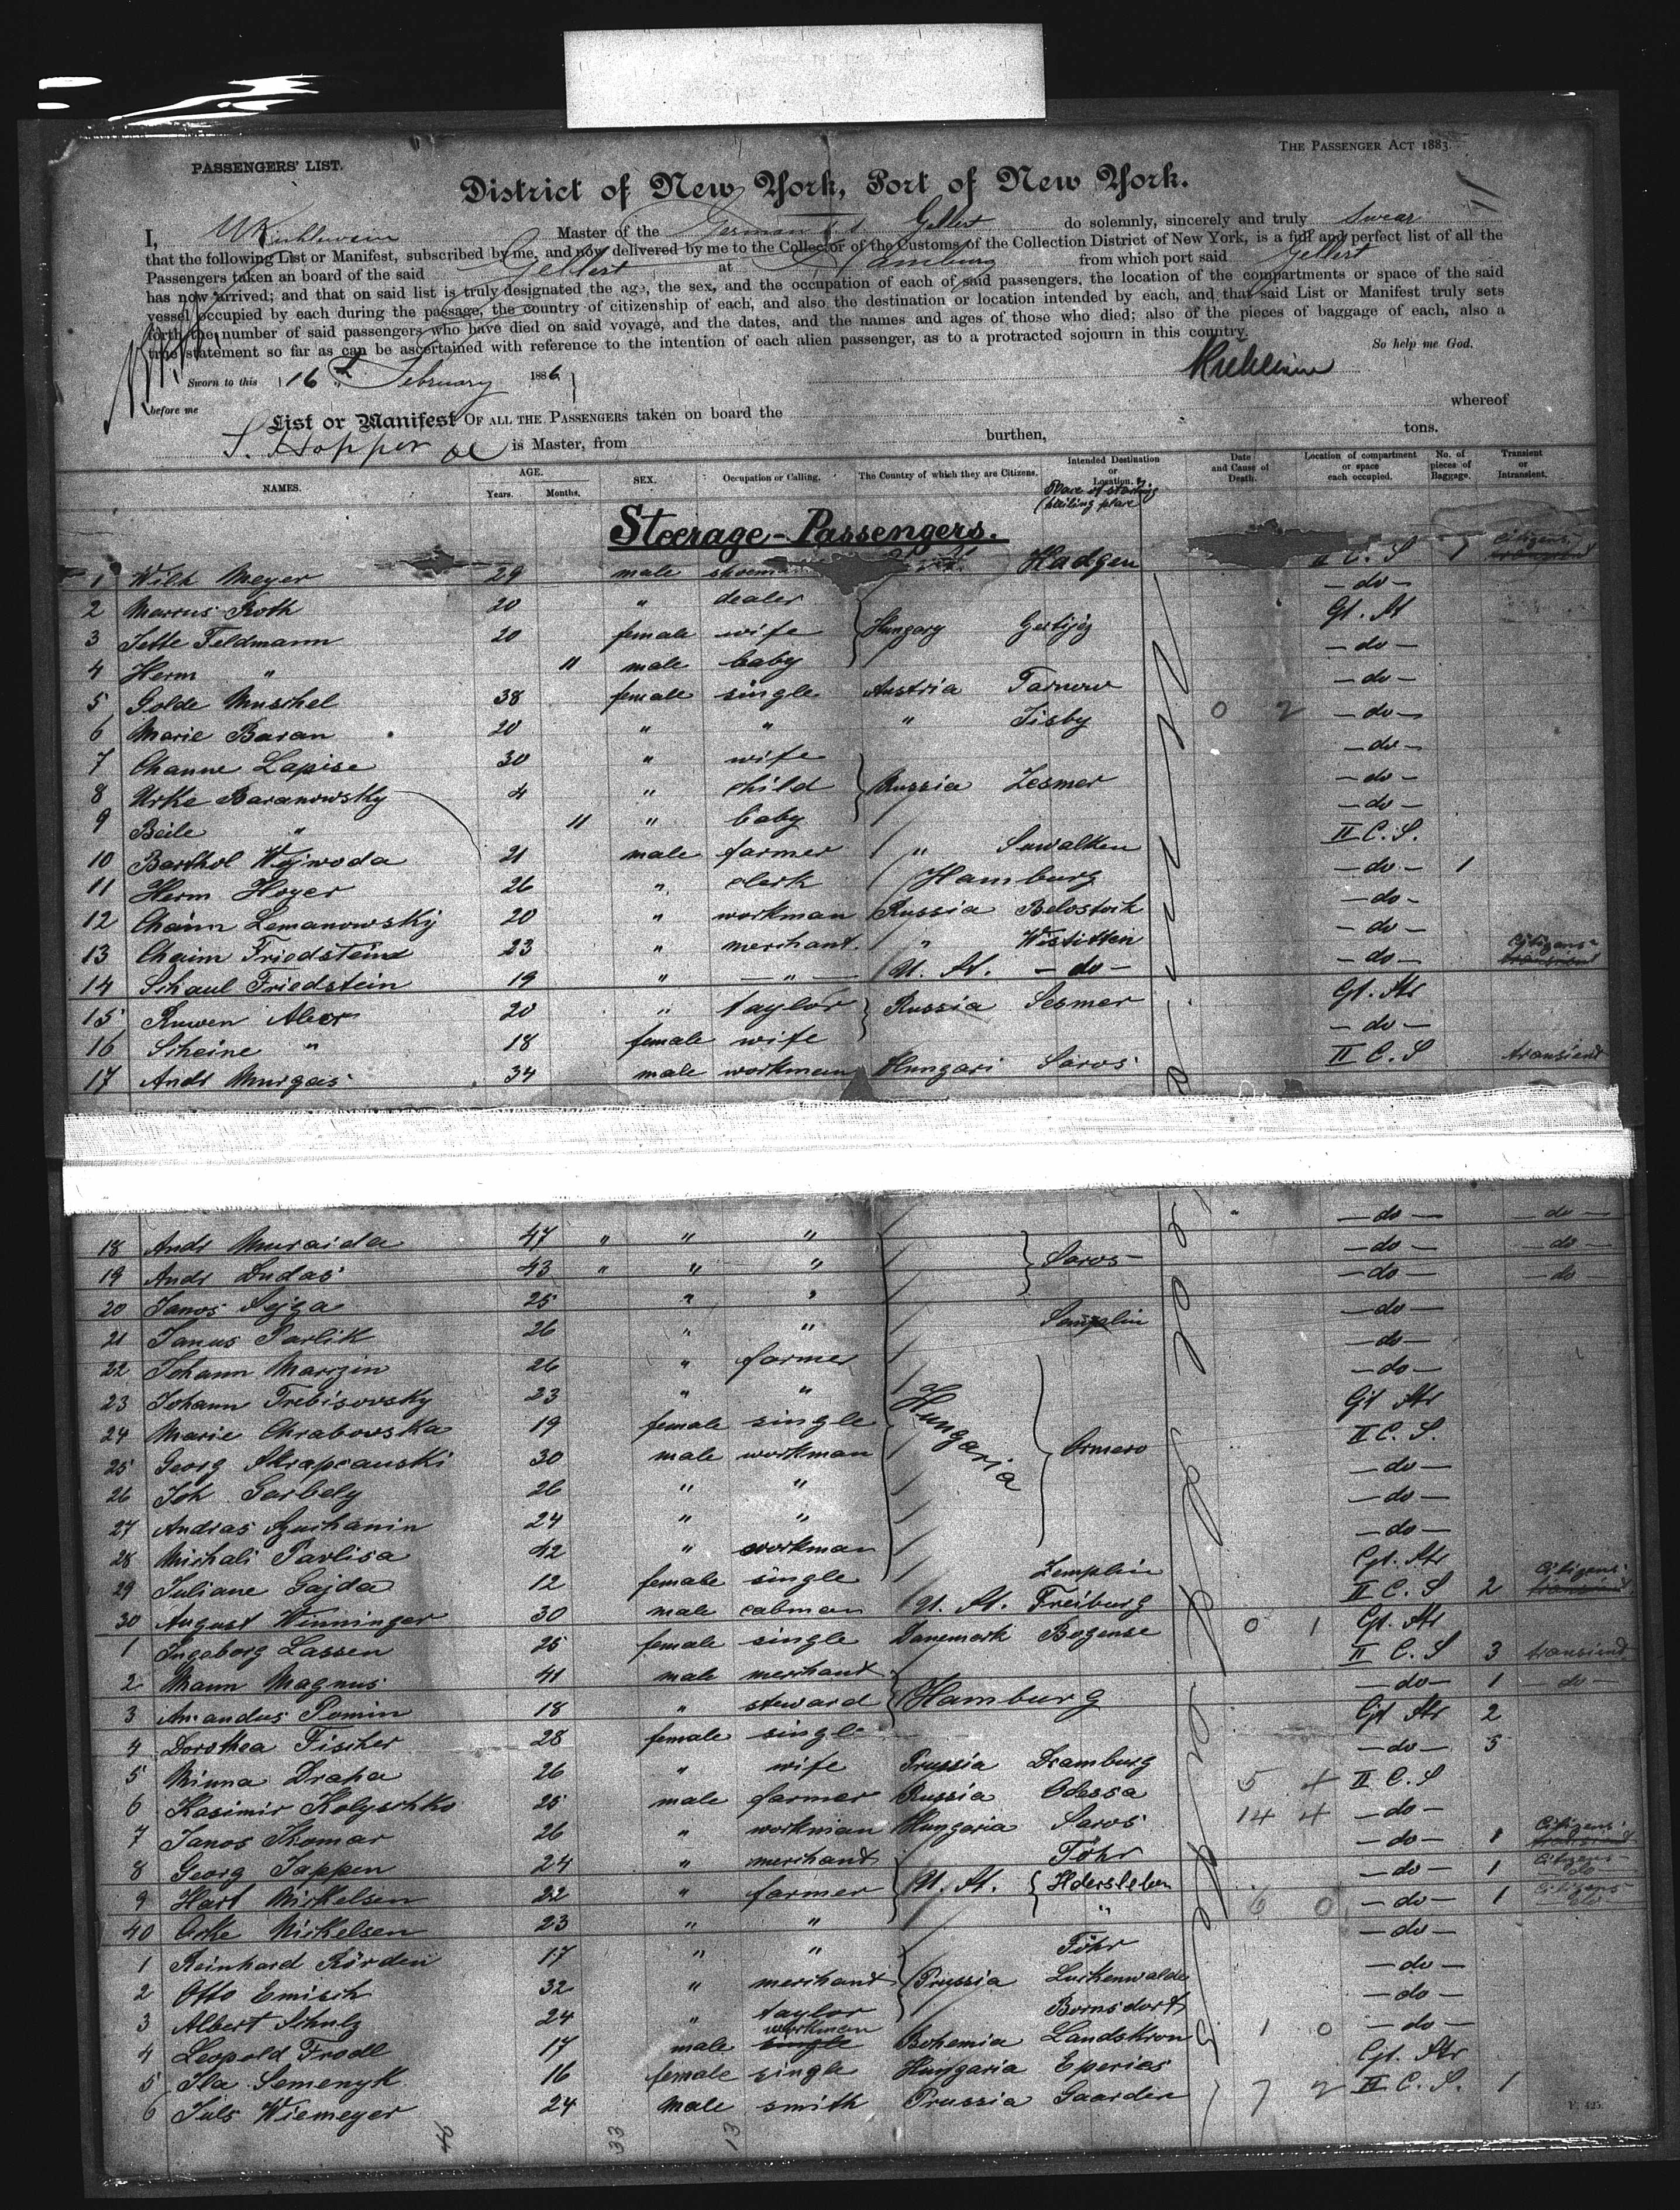 PASSENGERS' LIST.
THE PASSENGER ACT 1883.
District of New York, Port of New York.
I, Master of the German S S Gellert do solemnly, sincerely and truly swear
that the following List or Manifest, subscribed by me, and now delivered by me to the Collector of the Customs of the Collection District of New York, is a full and perfect list of all the
Passengers taken on board of the said Gellert at Hamburg from which port said Gellert
has now arrived; and that on said list is truly designated the age, the sex, and the occupation of each of said passengers, the location of the compartments or space of the said
vessel occupied by each during the passage, the country of citizenship of each, and also the destination or location intended by each, and that said List or Manifest truly sets
forth the number of said passengers who have died on said voyage, and the dates, and the names and ages of those who died; also of the pieces of baggage of each, also a
true statement so far as can be ascertained with reference to the intention of each alien passenger, as to a protracted sojourn in this country.
So help me God.
Sworn to this 16th February 1886
before me
List or Manifest OF ALL THE PASSENGERS taken on board the whereof
S. Hopper is Master, from burthen, tons.
NAMES. AGE. Years. Months. SEX. Occupation or Calling. The Country of which they are Citizens. Intended Destination or Location. Date and Cause of Death. Location of compartment or space each occupied. No. of pieces of Baggage. Transient or Intransient.
Place of starting
(hailing place
Steerage-Passengers.
1 Wilh Meyer 29 male Hadgen II C. S 1 Citizens
2 Marcus Roth 20 " dealer - do -
3 Jette Feldmann 20 female wife Hungary Gt. St
4 Herm " 11 male baby - do -
5 Golde Muschel 38 female single Austria Tarnow - do -
6 Marie Baran 20 " " " Tisby 0 2 - do -
7 Channe Lapise 30 " wife - do -
8 Urke Baranowsky 4 " child Russia Lesmer - do -
9 Beile " 11 " baby - do -
10 Barthol Wojwoda 21 male farmer " Suwalken II C. S.
11 Herm Hoyer 26 " clerk Hamburg - do - 1
12 Chaim Lemanowsky 20 " workman Russia Belostock - do -
13 Chaim Friedstein 23 " merchant " Wistitten - do -
14 Schaul Friedstein 19 " - " - U. St. - do - - do - Citizens
15 Ruwen Aber 20 " taylor Russia Sesmer Gt. Str
16 Scheine " 18 female wife - do -
17 Andr Murgas 34 male workman Hungari Saros II C. S transient
18 Andr Muraida 47 " " " - do - - do -
19 Andr Dudas 43 " " " Saros - do - - do -
20 Janos Sejga 25 " " - do - - do -
21 Janus Parlik 26 " " Semplin - do -
22 Johann Marrzin 26 " farmer - do -
23 Johann Trebisovsky 23 " " - do -
24 Marie Chrabowska 19 female single Hungaria Gt Str
25 Georg Skrapcauski 30 male workman Ormero II C. S.
26 Joh Garbely 26 " " - do -
27 Andras 24 " " - do -
28 Michali Pavlisa 42 " workman - do -
29 Juliane Gajda 12 female single Zemplin Gt. Str
30 August Winninger 30 male cabman U. St. Freiburg II C. S 2 Citizens
1 Ingeborg Lassen 25 female single Danemark Bogense 0 1 Gt. Str
2 Mann Magnus 41 male merchant II C. S 3 transient
3 Amandus Pomin 18 " steward Hamburg - do - 1 - do -
4 Dorothea Fischer 28 female single Gt Str 2
5 Minna Drapa 26 " wife Prussia Dramburg - do - 3
6 Kasimir Kolyschko 25 male farmer Russia Odessa 5 4 II C. S
7 Janos Komar 26 " workman Hungaria Saros 14 4 - do -
8 Georg Jappen 24 " merchant Föhr - do - 1 Citizens
9 Hart Mickelsen 22 " farmer U. St. Hdersleben - do - 1 Citizens
40 Ocke Nickelsen 23 " " " 6 0 - do - 1 Citizens
1 Reinhard Rörden 17 " " Föhr - do -
2 Otto Emisch 32 " merchant Prussia Luckenwalde - do -
3 Albert Schulz 24 " taylor Bornsdorf - do -
4 Leopold Frodl 17 male workman Bohemia Landskron 1 0 - do -
5 Ila Semenyk 16 female single Hungaria Eperies Gt. Str
6 Juls Wiemeyer 24 male smith Prussia Gaarden 7 2 II C. S. 1
33 13
F. 425.